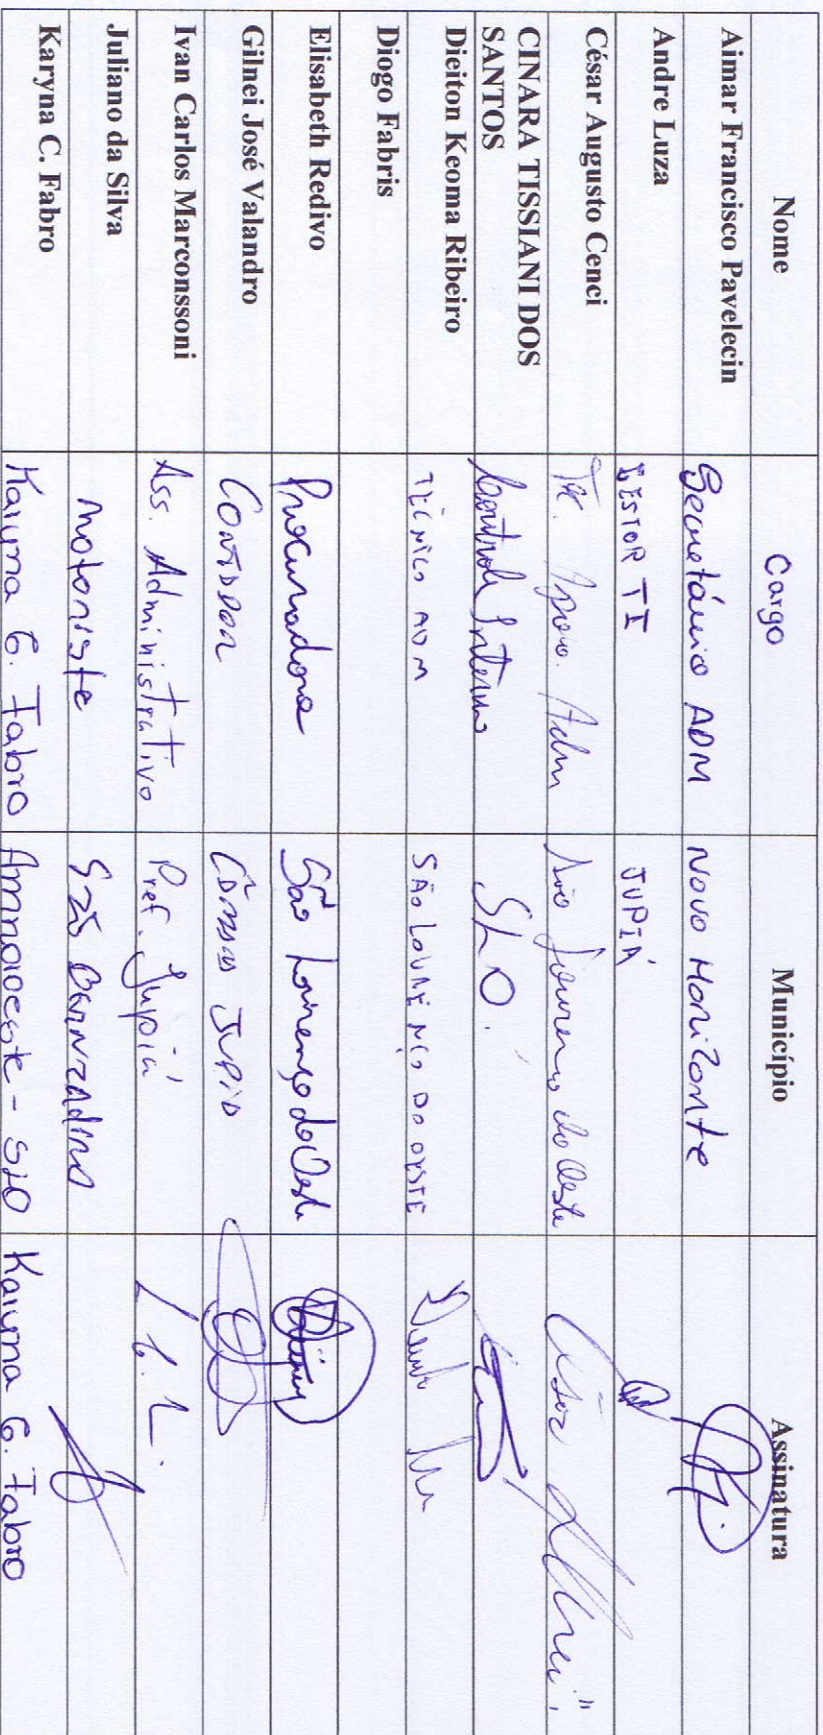 Nome Cargo Município Assinatura
Aimar Francisco Pavelecin Secretário ADM Novo Horizonte
Andre Luza GESTOR TI JUPIÁ
César Augusto Cenci Téc. Apoio. Adm São Lourenço do Oeste
CINARA TISSIANI DOS
SANTOS Controle Interno SLO.
Dieiton Keoma Ribeiro TÉCNICO ADM SÃO LOURENÇO DO OESTE
Diogo Fabris
Elisabeth Redivo Procuradora São Lourenço do Oeste
Gilnei José Valandro CONTADOR Câmara JUPIÁ
Ivan Carlos Marconssoni Ass. Administrativo Pref. Jupiá
Juliano da Silva motorista São Bernardino
Karyna C. Fabro Karyna C. Fabro Amnoroeste - SLO Karyna C. Fabro